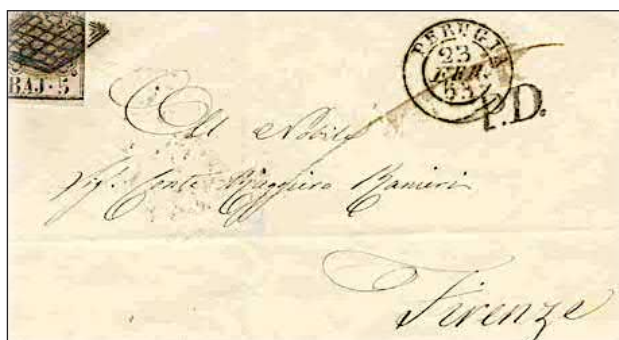 BAJ·5
PERUGIA
23
FEB.
53
P.D.
All Nobile
Sig. Conte Ruggiero Ranieri
Firenze